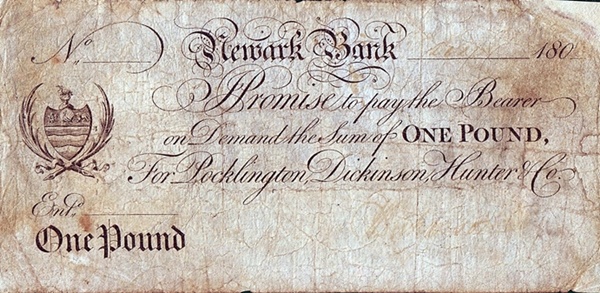 No. Newark Bank 180
I Promise to pay the Bearer
on Demand the Sum of ONE POUND,
For Pocklington, Dickinson, Hunter & Co.
Entd.
One Pound